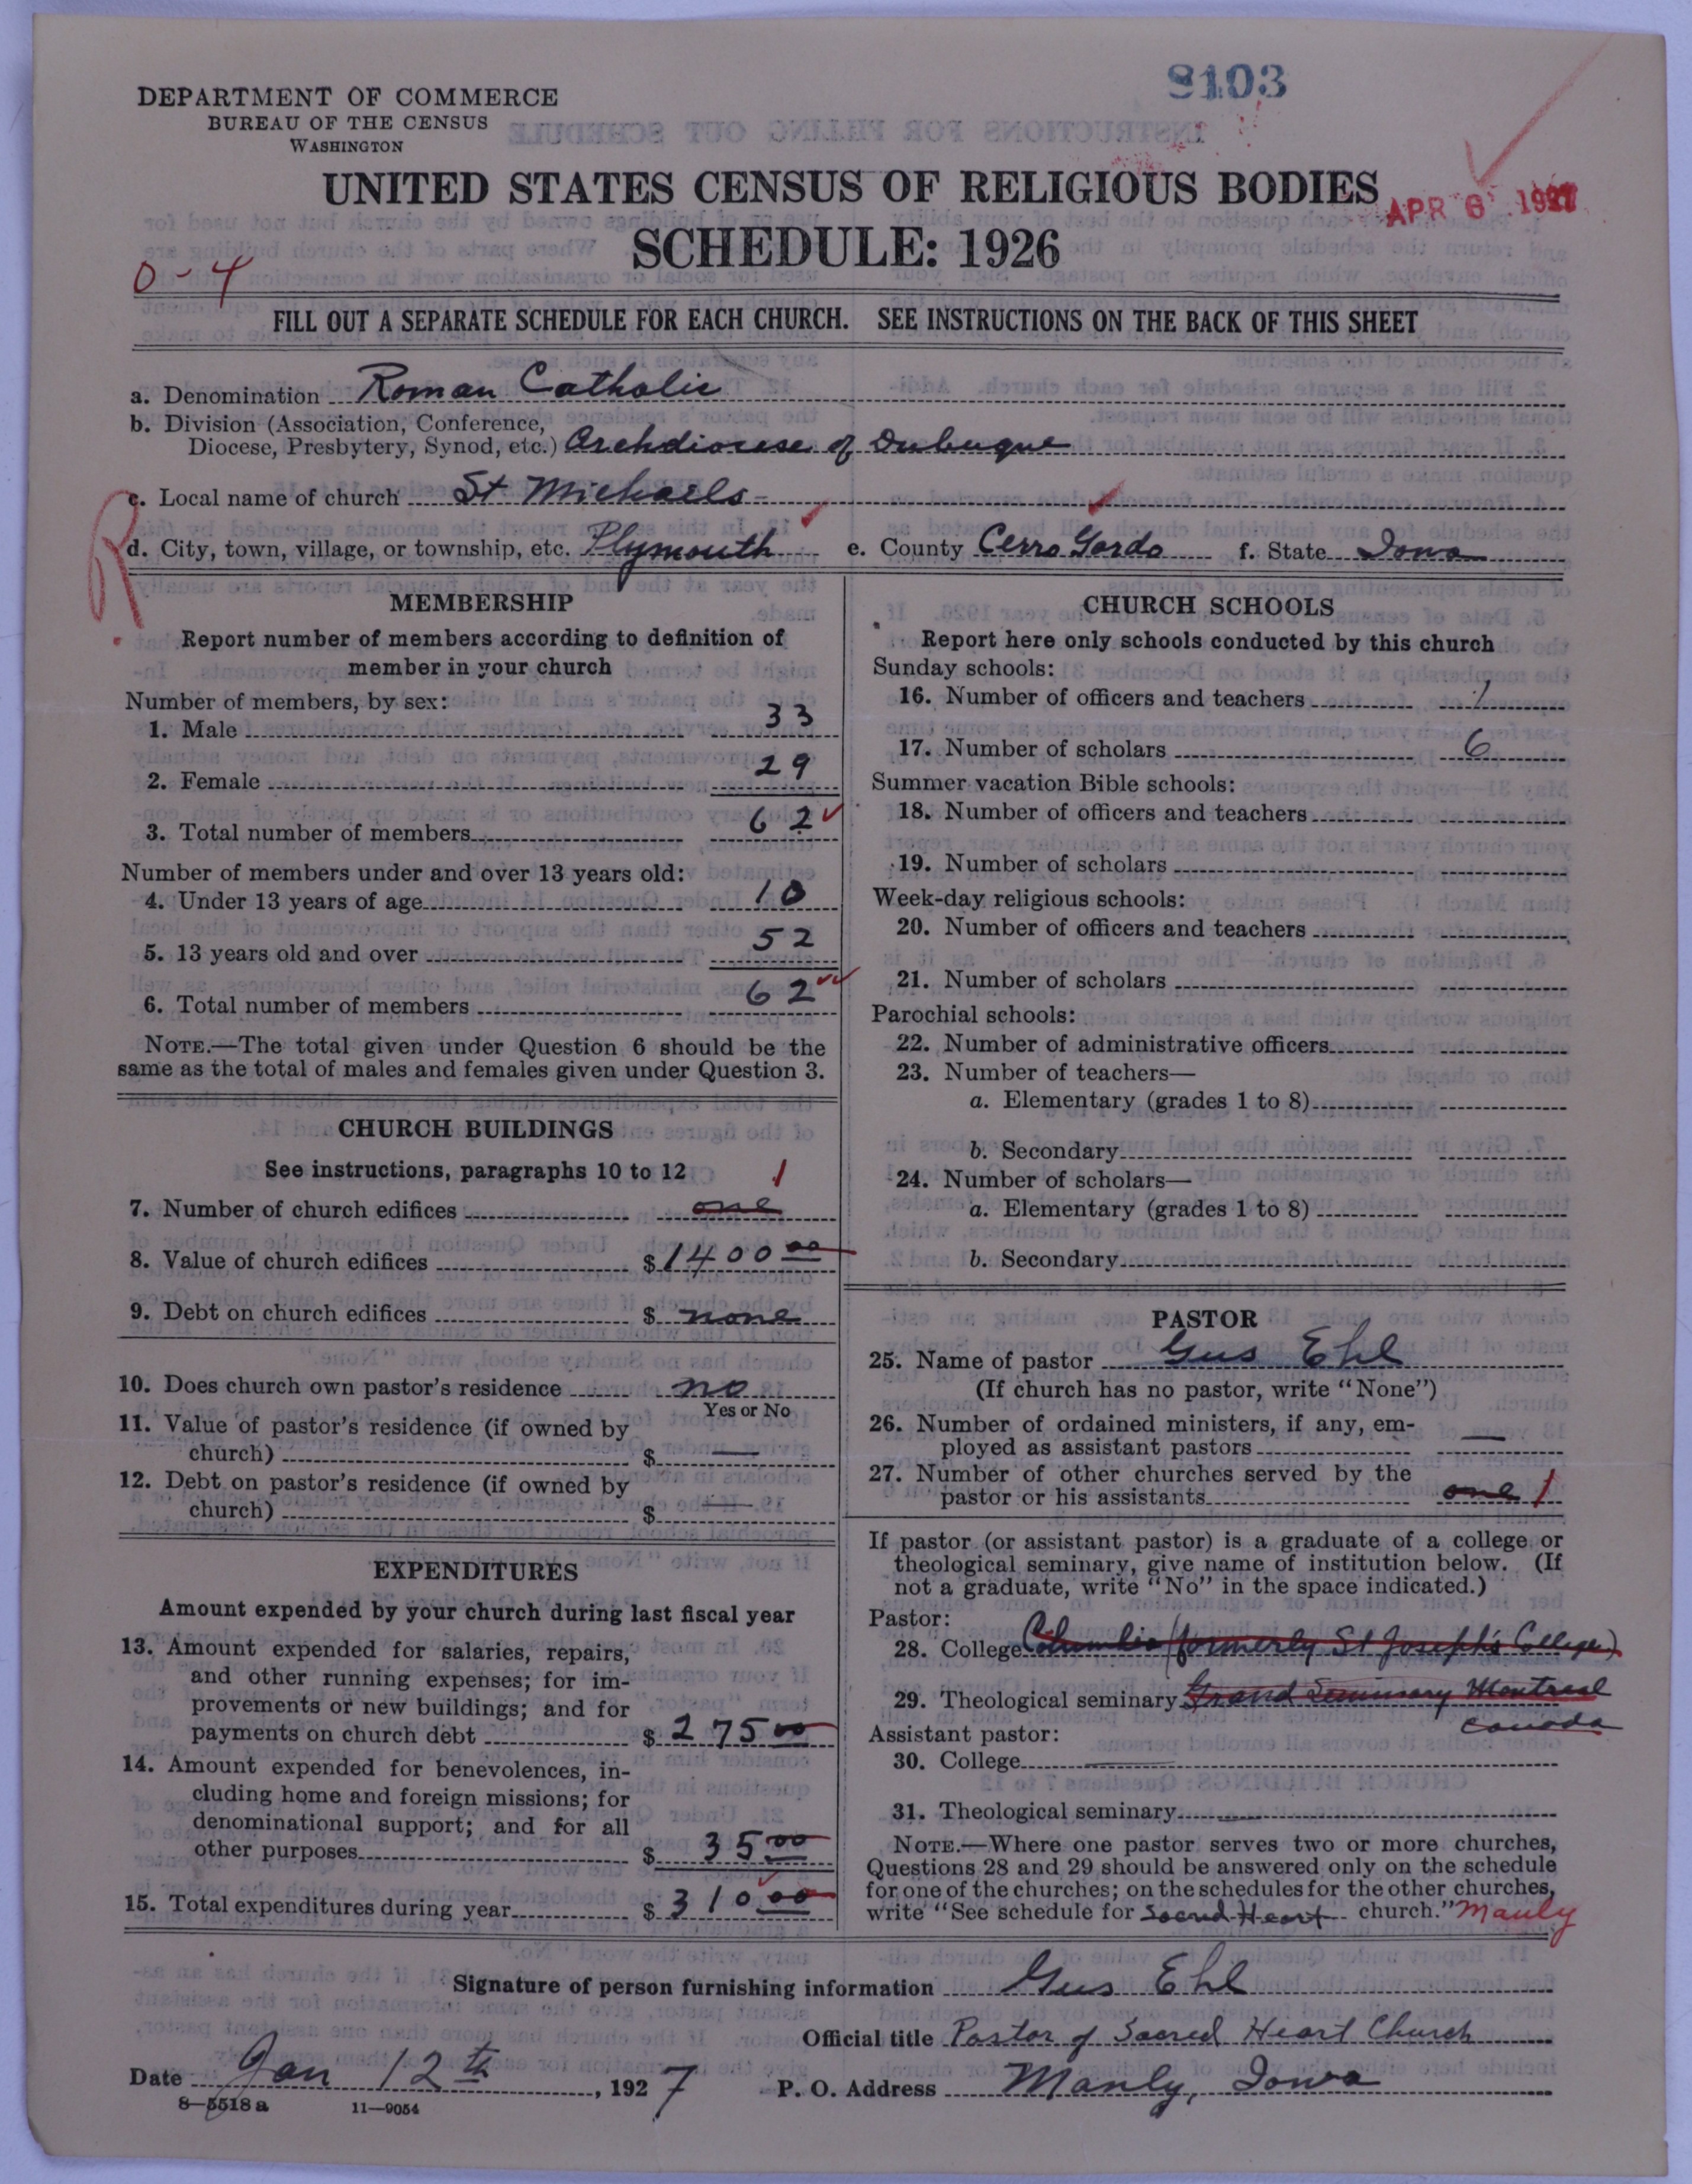 8103
DEPARTMENT OF COMMERCE
BUREAU OF THE CENSUS
WASHINGTON
UNITED STATES CENSUS OF RELIGIOUS BODIES
APR 6 1927
SCHEDULE: 1926
0-4
FILL OUT A SEPARATE SCHEDULE FOR EACH CHURCH. SEE INSTRUCTIONS ON THE BACK OF THIS SHEET
a. Denomination Roman Catholic
b. Division (Association, Conference,
Diocese, Presbytery, Synod, etc.) Archdiocese of Dubuque
c. Local name of church St Michaels
R
d. City, town, village, or township, etc. Plymouth e. County Cerro Gordo f. State Iowa
MEMBERSHIP
Report number of members according to definition of
member in your church
Number of members, by sex:
1. Male 33
2. Female 29
3. Total number of members 62
Number of members under and over 13 years old:
4. Under 13 years of age 10
5. 13 years old and over 52
6. Total number of members 62
NOTE.—The total given under Question 6 should be the
same as the total of males and females given under Question 3.
CHURCH BUILDINGS
See instructions, paragraphs 10 to 12
1
7. Number of church edifices one
8. Value of church edifices $1400 00
9. Debt on church edifices $ none
10. Does church own pastor's residence no
Yes or No
11. Value of pastor's residence (if owned by
church) $ —
12. Debt on pastor's residence (if owned by
church) $ —
EXPENDITURES
Amount expended by your church during last fiscal year
13. Amount expended for salaries, repairs,
and other running expenses; for im-
provements or new buildings; and for
payments on church debt $ 275 00
14. Amount expended for benevolences, in-
cluding home and foreign missions; for
denominational support; and for all
other purposes $ 35 00
15. Total expenditures during year $ 310 00
CHURCH SCHOOLS
Report here only schools conducted by this church
Sunday schools:
16. Number of officers and teachers 1
17. Number of scholars 6
Summer vacation Bible schools:
18. Number of officers and teachers
19. Number of scholars
Week-day religious schools:
20. Number of officers and teachers
21. Number of scholars
Parochial schools:
22. Number of administrative officers
23. Number of teachers—
a. Elementary (grades 1 to 8)
b. Secondary
24. Number of scholars—
a. Elementary (grades 1 to 8)
b. Secondary
PASTOR
25. Name of pastor Gus Ehl
(If church has no pastor, write "None")
26. Number of ordained ministers, if any, em-
ployed as assistant pastors —
27. Number of other churches served by the
pastor or his assistants one 1
If pastor (or assistant pastor) is a graduate of a college or
theological seminary, give name of institution below. (If
not a graduate, write "No" in the space indicated.)
Pastor:
28. College Columbia (formerly St Joseph's College)
29. Theological seminary Grand Seminary Montreal
Canada
Assistant pastor:
30. College
31. Theological seminary
NOTE.—Where one pastor serves two or more churches,
Questions 28 and 29 should be answered only on the schedule
for one of the churches; on the schedules for the other churches,
write "See schedule for Sacred Heart church." Manly
Signature of person furnishing information Gus Ehl
Official title Pastor of Sacred Heart Church
Date Jan 12th, 1927 P. O. Address Manly, Iowa
8—5518 a 11—9054